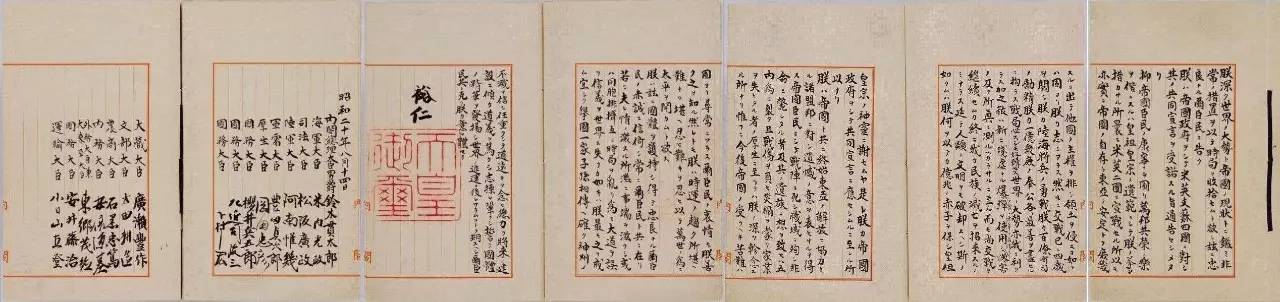 朕深ク世界ノ大勢ト帝國ノ現狀トニ鑑ミ非
常ノ措置ヲ以テ時局ヲ收拾セムト欲シ茲ニ忠
良ナル爾臣民ニ告ク
朕ハ帝國政府ヲシテ米英支蘇四國ニ對シ
其ノ共同宣言ヲ受諾スル旨通告セシメタ
リ
抑〻帝國臣民ノ康寧ヲ圖リ萬邦共榮ノ樂
ヲ偕ニスルハ皇祖皇宗ノ遺範ニシテ朕ノ拳々
措カサル所曩ニ米英二國ニ宣戰セル所以モ
亦實ニ帝國ノ自存ト東亞ノ安定トヲ庶幾
スルニ出テ他國ノ主權ヲ排シ領土ヲ侵スカ如キ
ハ固ヨリ朕カ志ニアラス然ルニ交戰已ニ四歳
ヲ閲シ朕カ陸海將兵ノ勇戰朕カ百僚有司
ノ勵精朕カ一億衆庶ノ奉公各〻最善ヲ盡セル
ニ拘ラス戰局必スシモ好轉セス世界ノ大勢亦我ニ利ア
ラス加之敵ハ新ニ殘虐ナル爆彈ヲ使用シテ頻ニ無辜ヲ殺傷シ慘害
ノ及フ所眞ニ測ルヘカラサルニ至ル而モ尚交戰ヲ
繼續セムカ終ニ我カ民族ノ滅亡ヲ招來スルノ
ミナラス延テ人類ノ文明ヲモ破却スヘシ斯ノ
如クムハ朕何ヲ以テカ億兆ノ赤子ヲ保シ皇祖
皇宗ノ神靈ニ謝セムヤ是レ朕カ帝國
政府ヲシテ共同宣言ニ應セシムルニ至レル所
以ナリ
朕ハ帝國ト共ニ終始東亞ノ解放ニ協力セ
ル諸盟邦ニ對シ遺憾ノ意ヲ表セサルヲ得
ス帝國臣民ニシテ戰陣ニ死シ職域ニ殉シ非
命ニ斃レタル者及其ノ遺族ニ想ヲ致セハ五
内爲ニ裂ク且戰傷ヲ負ヒ災禍ヲ蒙リ家業
ヲ失ヒタル者ノ厚生ニ至リテハ朕ノ深ク軫念スル
所ナリ惟フニ今後帝國ノ受クヘキ苦難ハ
固ヨリ尋常ニアラス爾臣民ノ衷情モ朕善
ク之ヲ知ル然レトモ朕ハ時運ノ趨ク所堪ヘ
難キヲ堪ヘ忍ヒ難キヲ忍ヒ以テ萬世ノ爲ニ
太平ヲ開カムト欲ス
朕ハ茲ニ國體ヲ護持シ得テ忠良ナル爾臣
民ノ赤誠ニ信倚シ常ニ爾臣民ト共ニ在リ
若シ夫レ情ノ激スル所濫ニ事端ヲ滋クシ或
ハ同胞排擠互ニ時局ヲ亂リ爲ニ大道ヲ誤
リ信義ヲ世界ニ失フカ如キハ朕最モ之ヲ戒
ム宜シク擧國一家子孫相傳ヘ確ク神州ノ
不滅ヲ信シ任重クシテ道遠キヲ念ヒ總力ヲ將來ノ建
設ニ傾ケ道義ヲ篤クシ志操ヲ鞏クシ誓テ國體
ノ精華ヲ發揚シ世界ノ進運ニ後レサラムコトヲ期スヘシ爾臣
民其レ克ク朕カ意ヲ體セヨ
裕仁
天皇
御璽
昭和二十年八月十四日
内閣總理大臣男爵 鈴木貫太郎
海軍大臣 米内光政
司法大臣 松阪廣政
陸軍大臣 阿南惟幾
軍需大臣 豐田貞次郎
厚生大臣 岡田忠彦
國務大臣 櫻井兵五郎
國務大臣 左近司政三
國務大臣 下村宏
大藏大臣 廣瀬豐作
文部大臣 太田耕造
農商大臣 石黒忠篤
内務大臣 安倍源基
外務大臣兼
大東亞大臣 東郷茂徳
國務大臣 安井藤治
運輸大臣 小日山直登